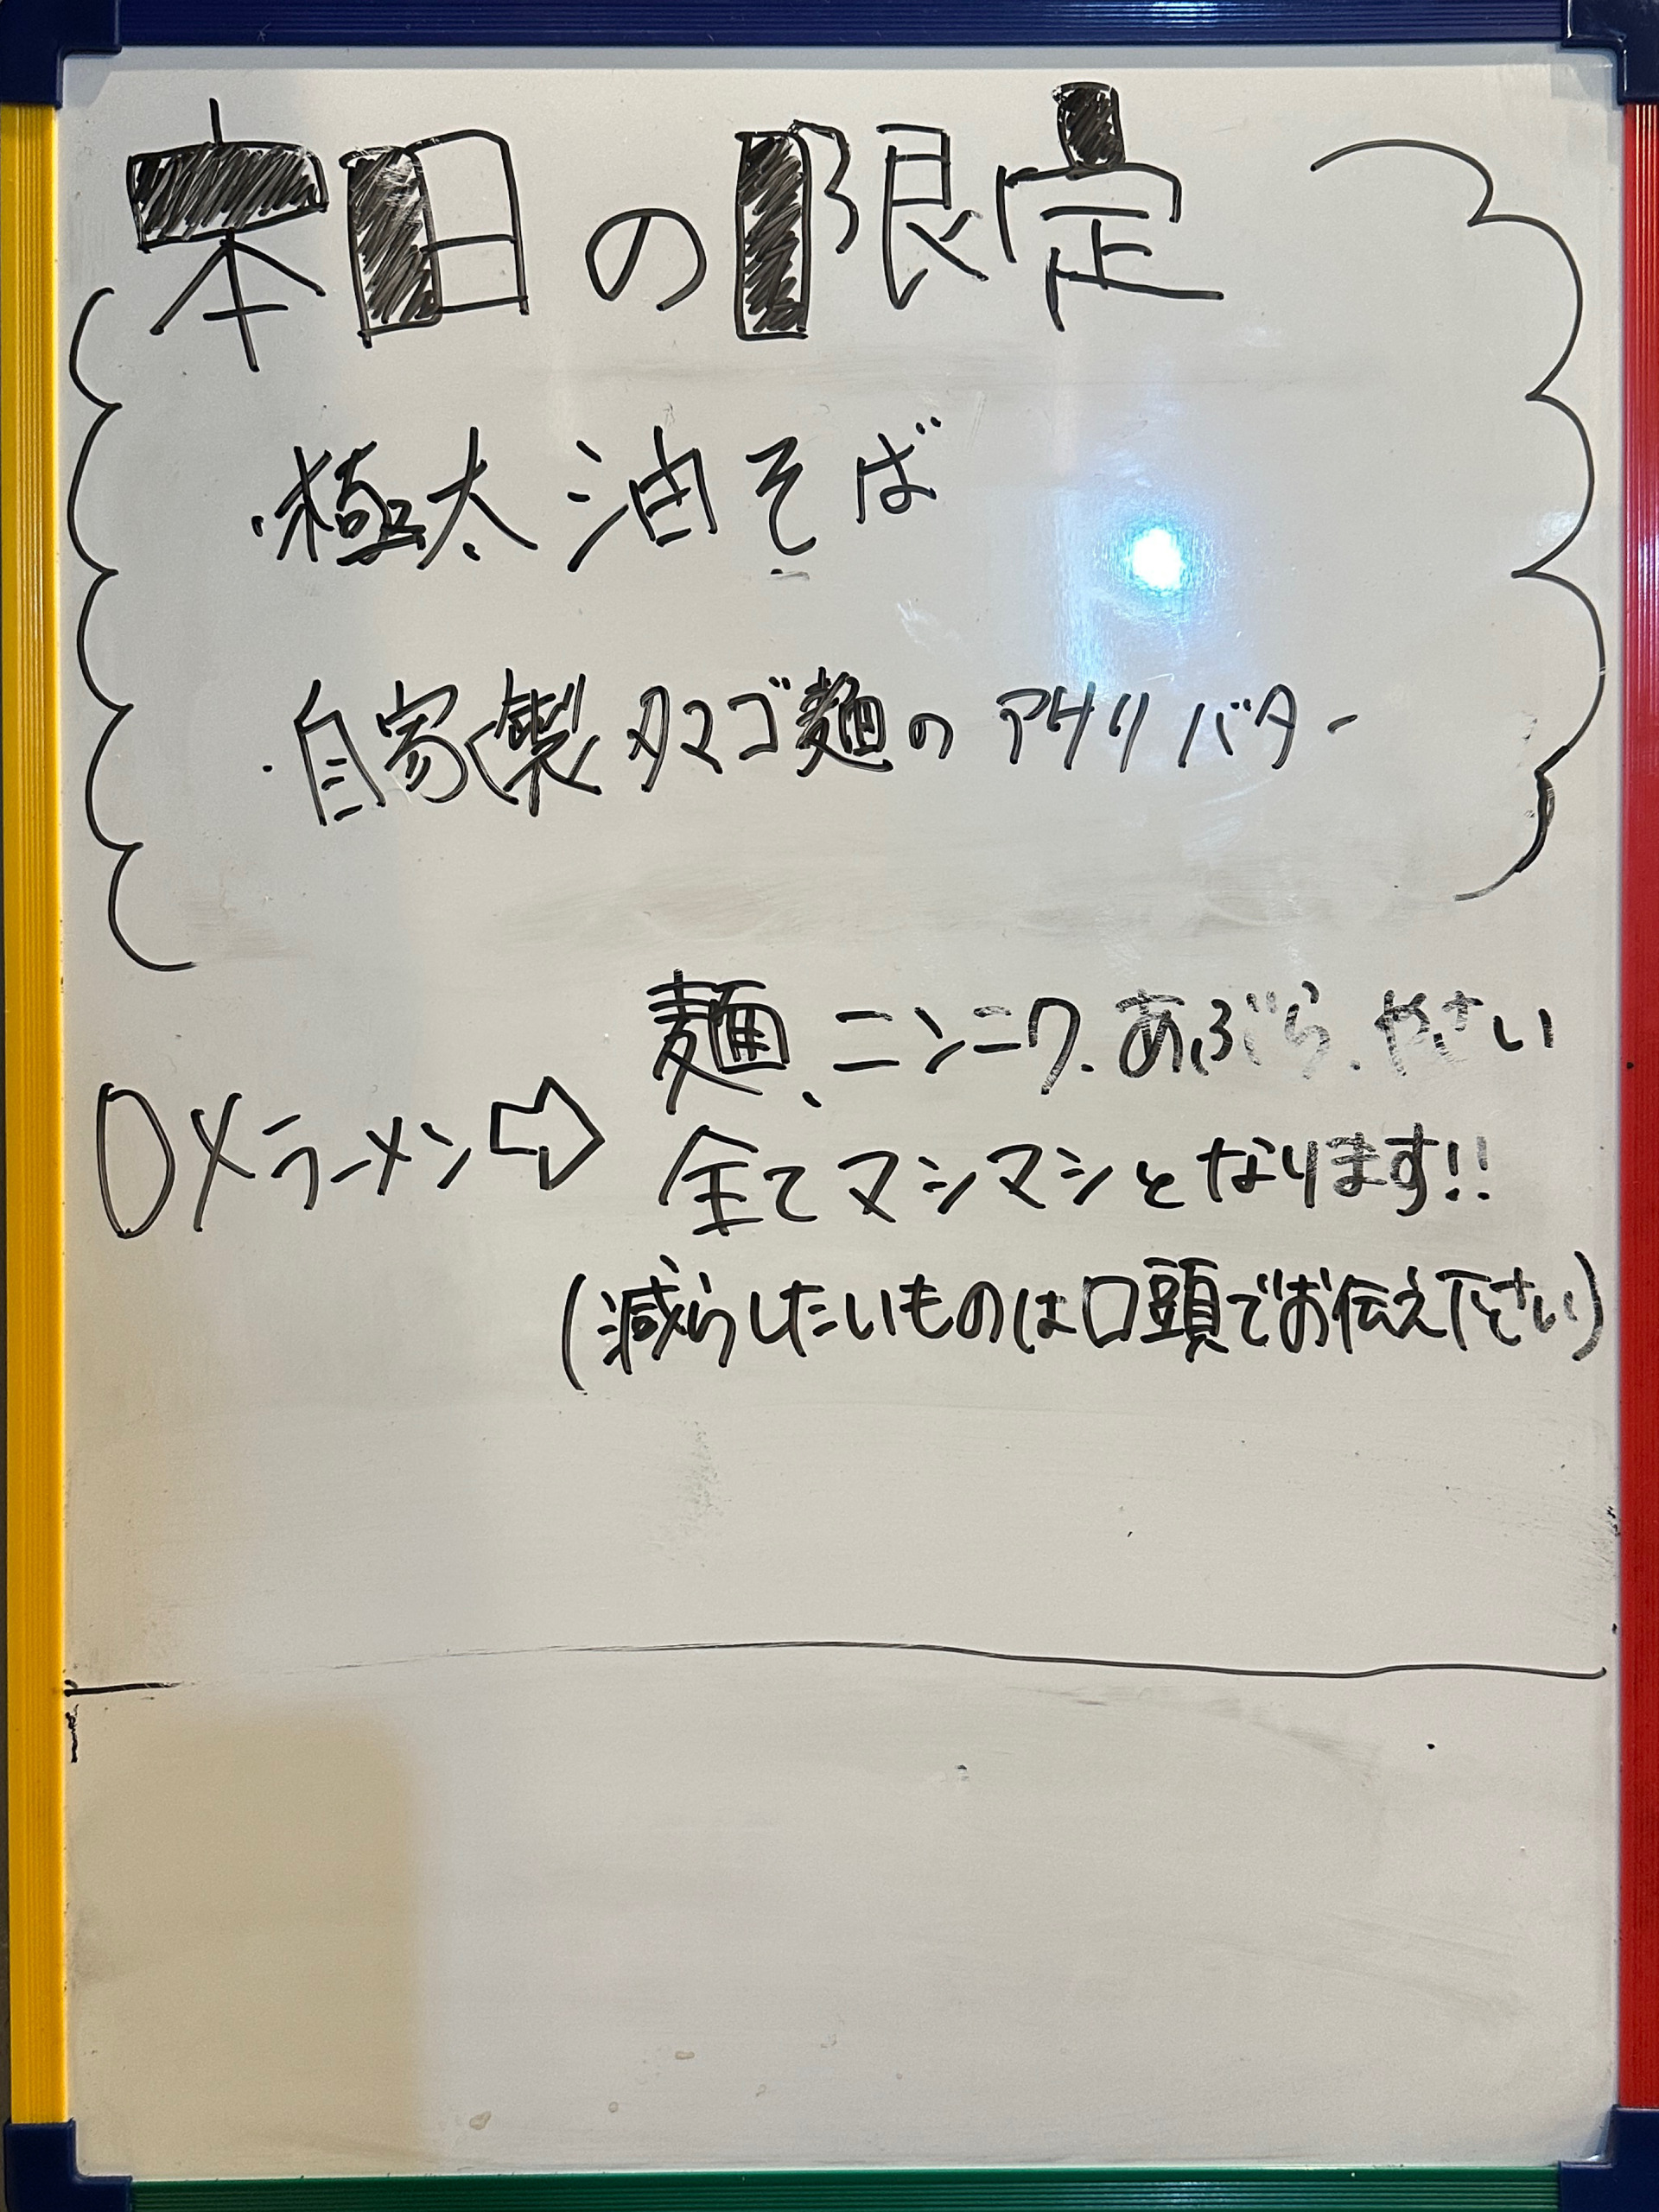 本日の限定
・極太油そば
・自家製タマゴ麺のアサリバター
麺、ニンニク、あぶら、やさい
DXラーメン⇨
全てマシマシとなります!!
(減らしたいものは口頭でお伝え下さい)